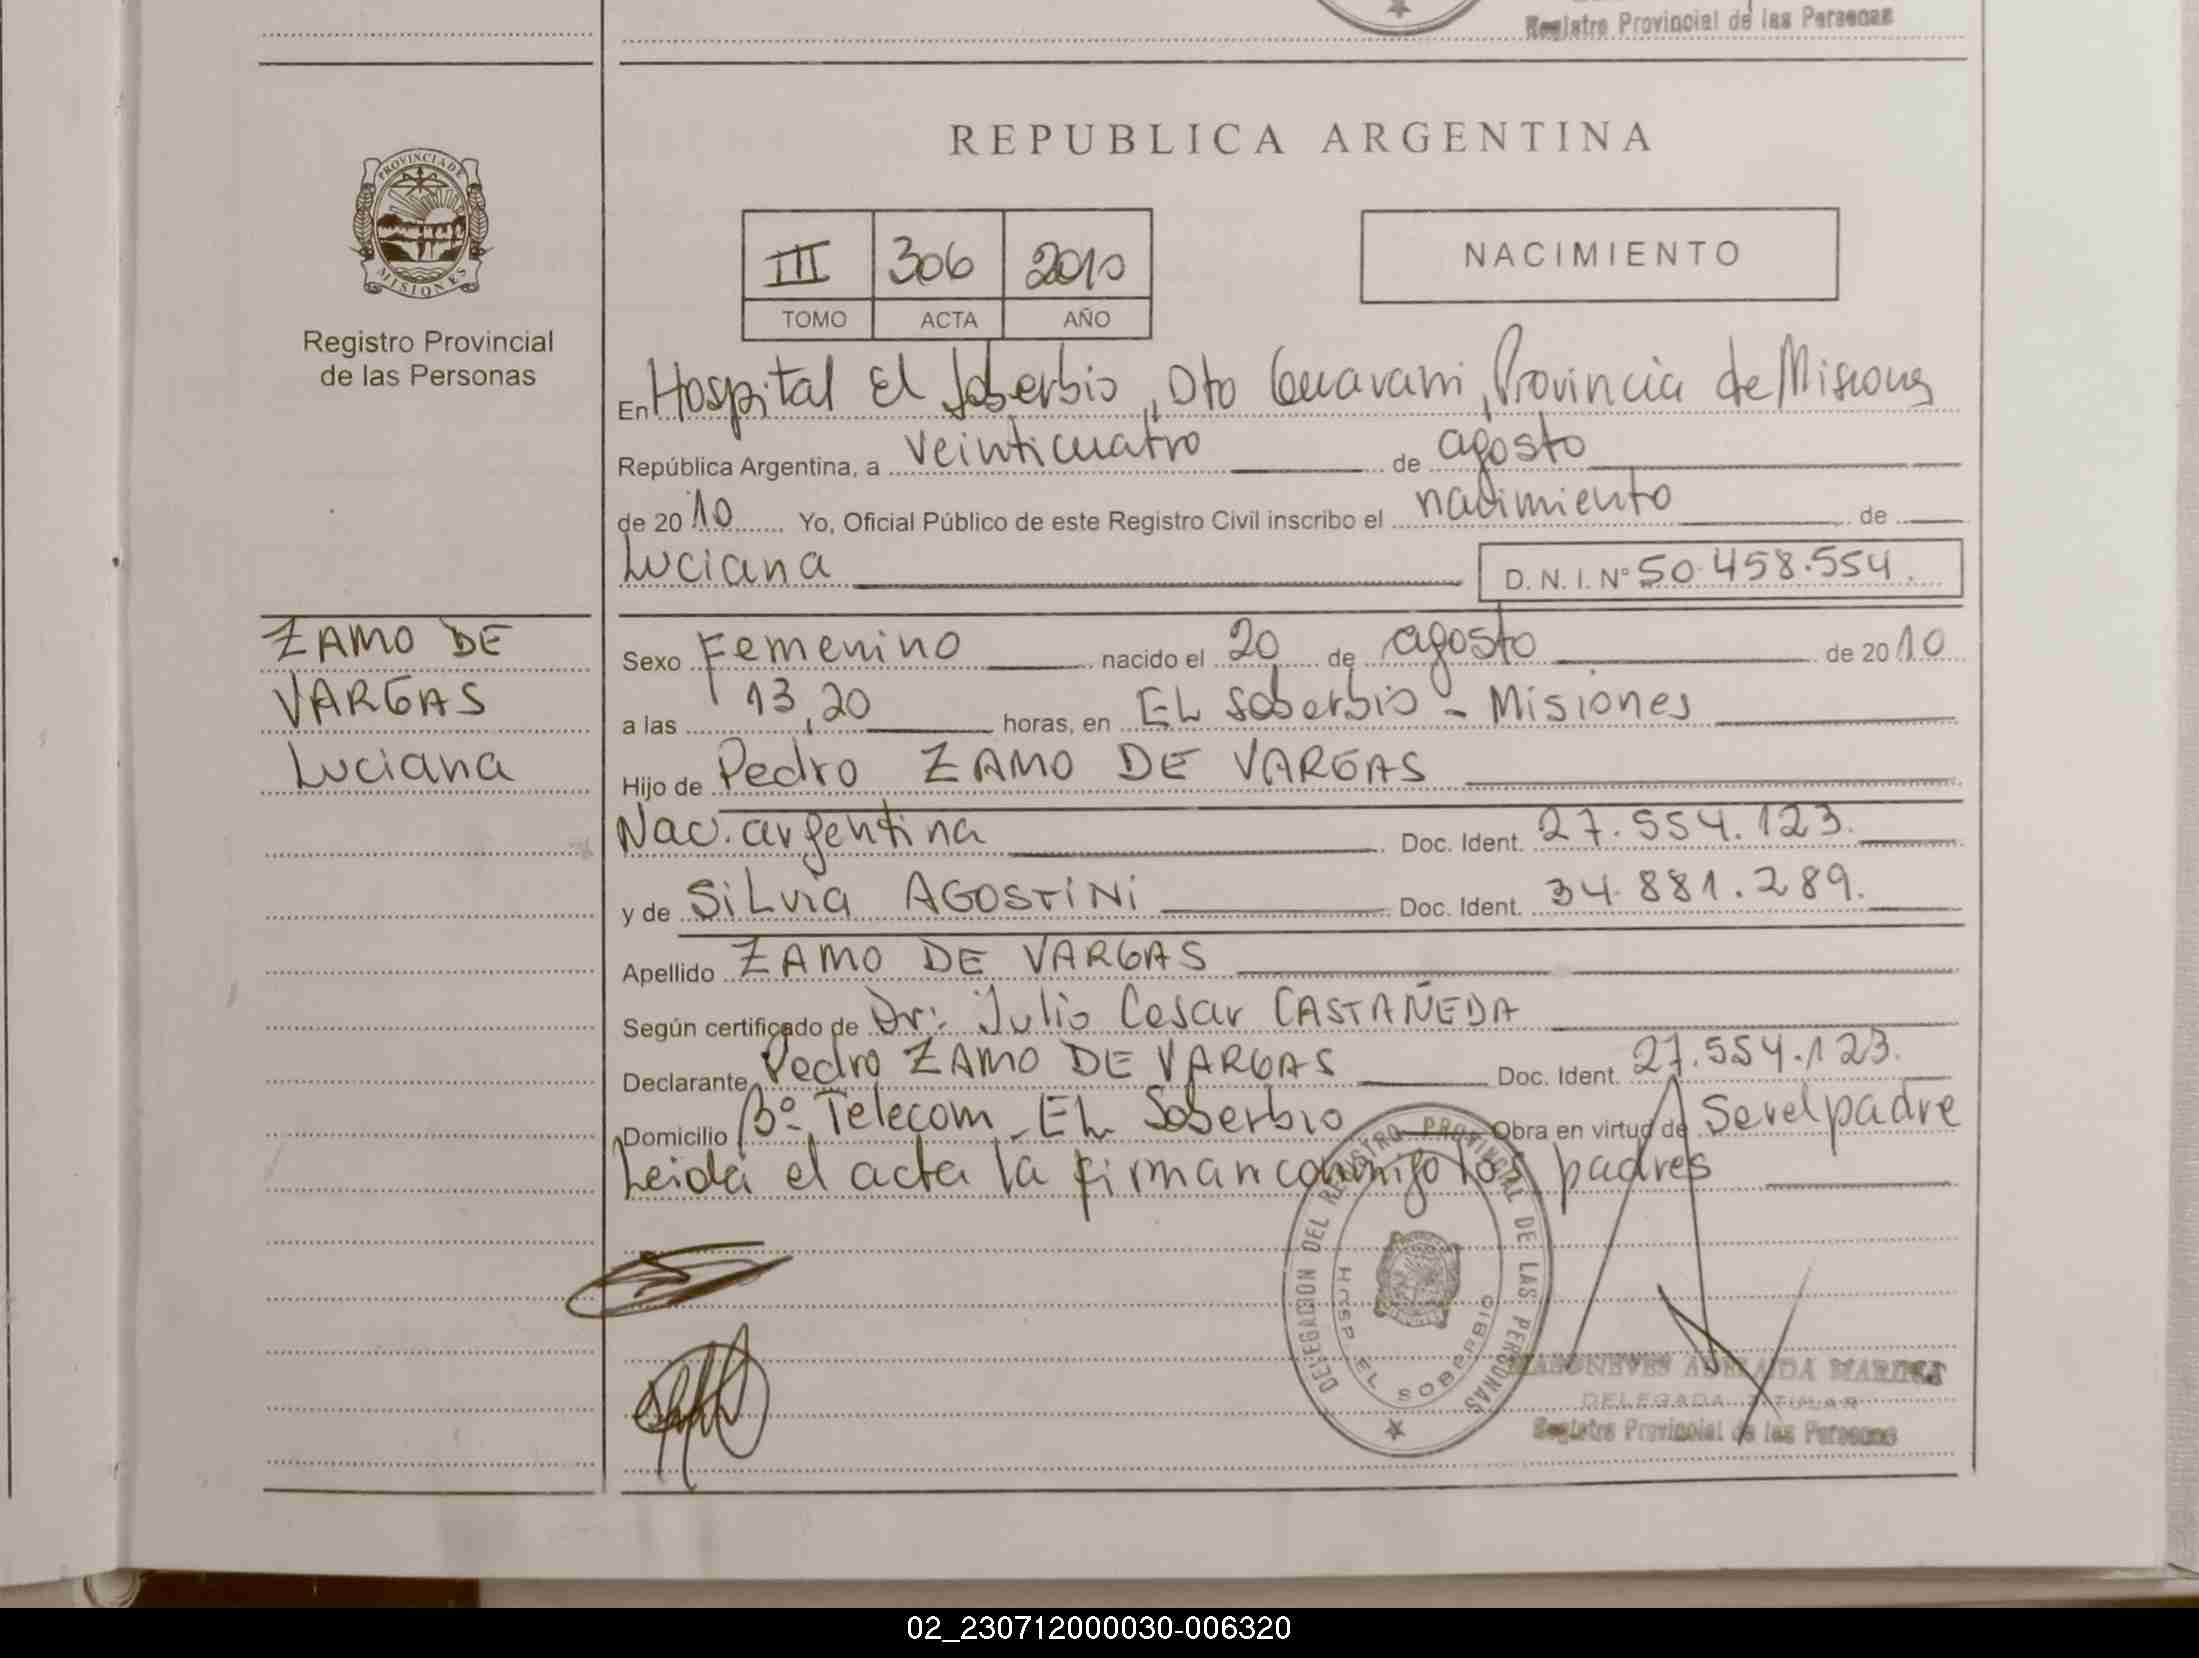 Registro Provincial de las Personas
REPUBLICA ARGENTINA
PROVINCIA DE
MISIONES
III 306 2010
TOMO ACTA AÑO
NACIMIENTO
Registro Provincial
de las Personas
En Hospital El Soberbio, Dto Guarani, Provincia de Misiones
República Argentina, a veinticuatro de agosto
de 2010 Yo, Oficial Público de este Registro Civil inscribo el nacimiento de
Luciana D. N. I. Nº 50.458.554.
ZAMO DE
VARGAS
Luciana
Sexo Femenino nacido el 20 de agosto de 2010
a las 13,20 horas, en EL Soberbio - Misiones
Hijo de Pedro ZAMO DE VARGAS
Nac. argentina Doc. Ident. 27.554.123.
y de Silvia AGOSTINI Doc. Ident. 34.881.289.
Apellido ZAMO DE VARGAS
Según certificado de Dr: Julio Cesar CASTAÑEDA
Declarante Pedro ZAMO DE VARGAS Doc. Ident. 27.554.123.
Domicilio Bº Telecom - EL Soberbio Obra en virtud de Ser el padre
Leida el acta la firman conmigo los padres
DELEGACION DEL REGISTRO PROVINCIAL DE LAS PERSONAS
HOSP. EL SOBERBIO
DELEGADA TITULAR
Registro Provincial de las Personas
02_230712000030-006320